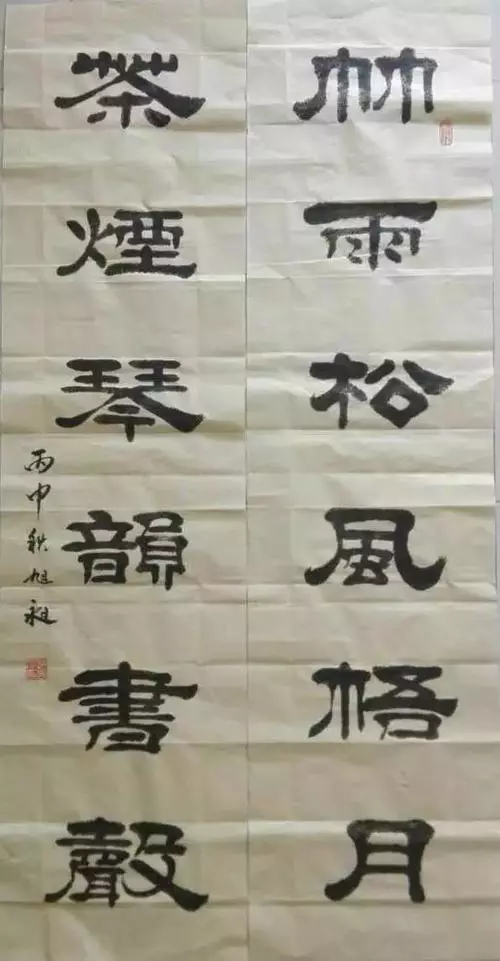 竹雨松風梧月
茶煙琴韻書聲
丙申秋旭昶